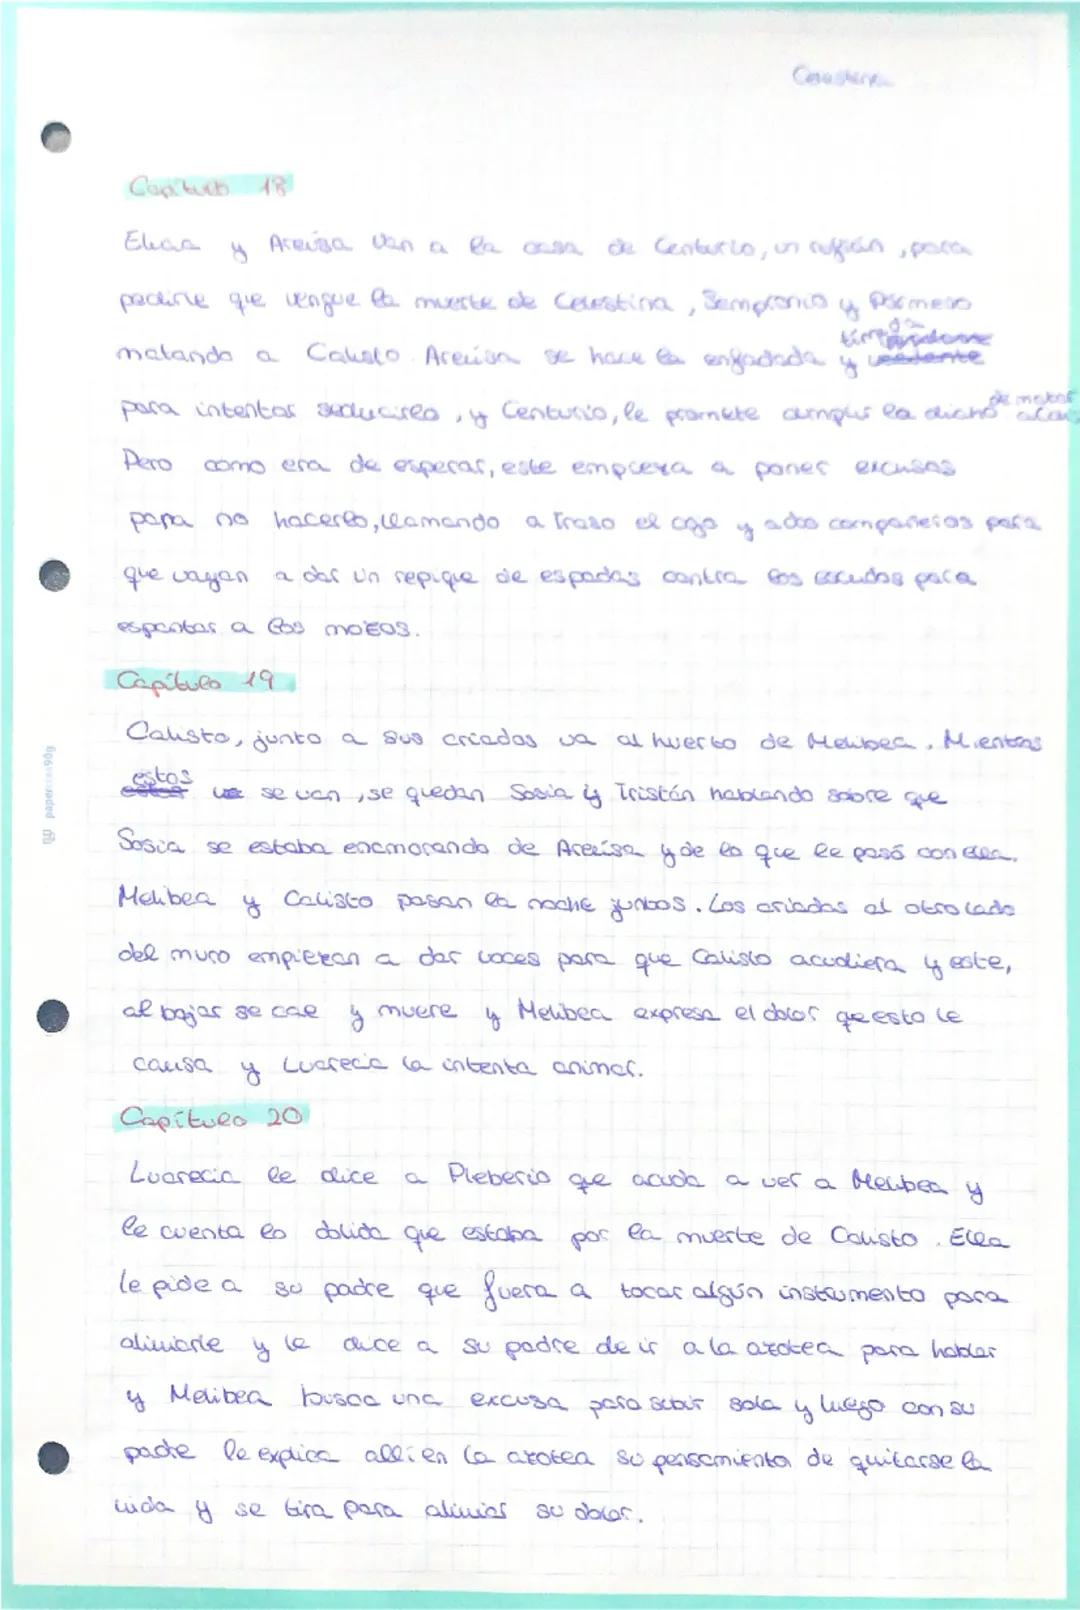 Capítulo 18
Elicia y Areúsa van a la casa de Centurio, un rufián, para
pedirle que vengue la muerte de Celestina, Sempronio y Pármeno
matando a Calisto. Areúsa se hace la enfadada y
para intentar seducirlo, y Centurio, le promete cumplir lo dicho de matar a
Pero como era de esperar, este empieza a poner excusas
para no hacerlo, llamando a Traso el cojo y a dos compañeros para
que vayan a dar un repique de espadas contra los escudos para
espantar a los mozos.
Capítulo 19
Calisto, junto a sus criados va al huerto de Melibea. Mientras
estos se van, se quedan Sosia y Tristán hablando sobre que
Sosia se estaba enamorando de Areúsa y de lo que le pasó con ella.
Melibea y Calisto pasan la noche juntos. Los criados al otro lado
del muro empiezan a dar voces para que Calisto acudiera y este,
al bajar se cae y muere y Melibea expresa el dolor que esto le
causa y Lucrecia la intenta animar.
Capítulo 20
Lucrecia le dice a Pleberio que acuda a ver a Melibea y
le cuenta lo dolida que estaba por la muerte de Calisto. Ella
le pide a su padre que fuera a tocar algún instrumento para
aliviarle y le dice a su padre de ir a la azotea para hablar
y Melibea busca una excusa para subir sola y luego con su
padre le explica allí en la azotea su pensamiento de quitarse la
vida y se tira para aliviar su dolor.